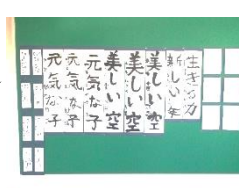 生きる力
新しい年
美しい空
美しい空
美しい空
元気な子
元気な子
元気な子